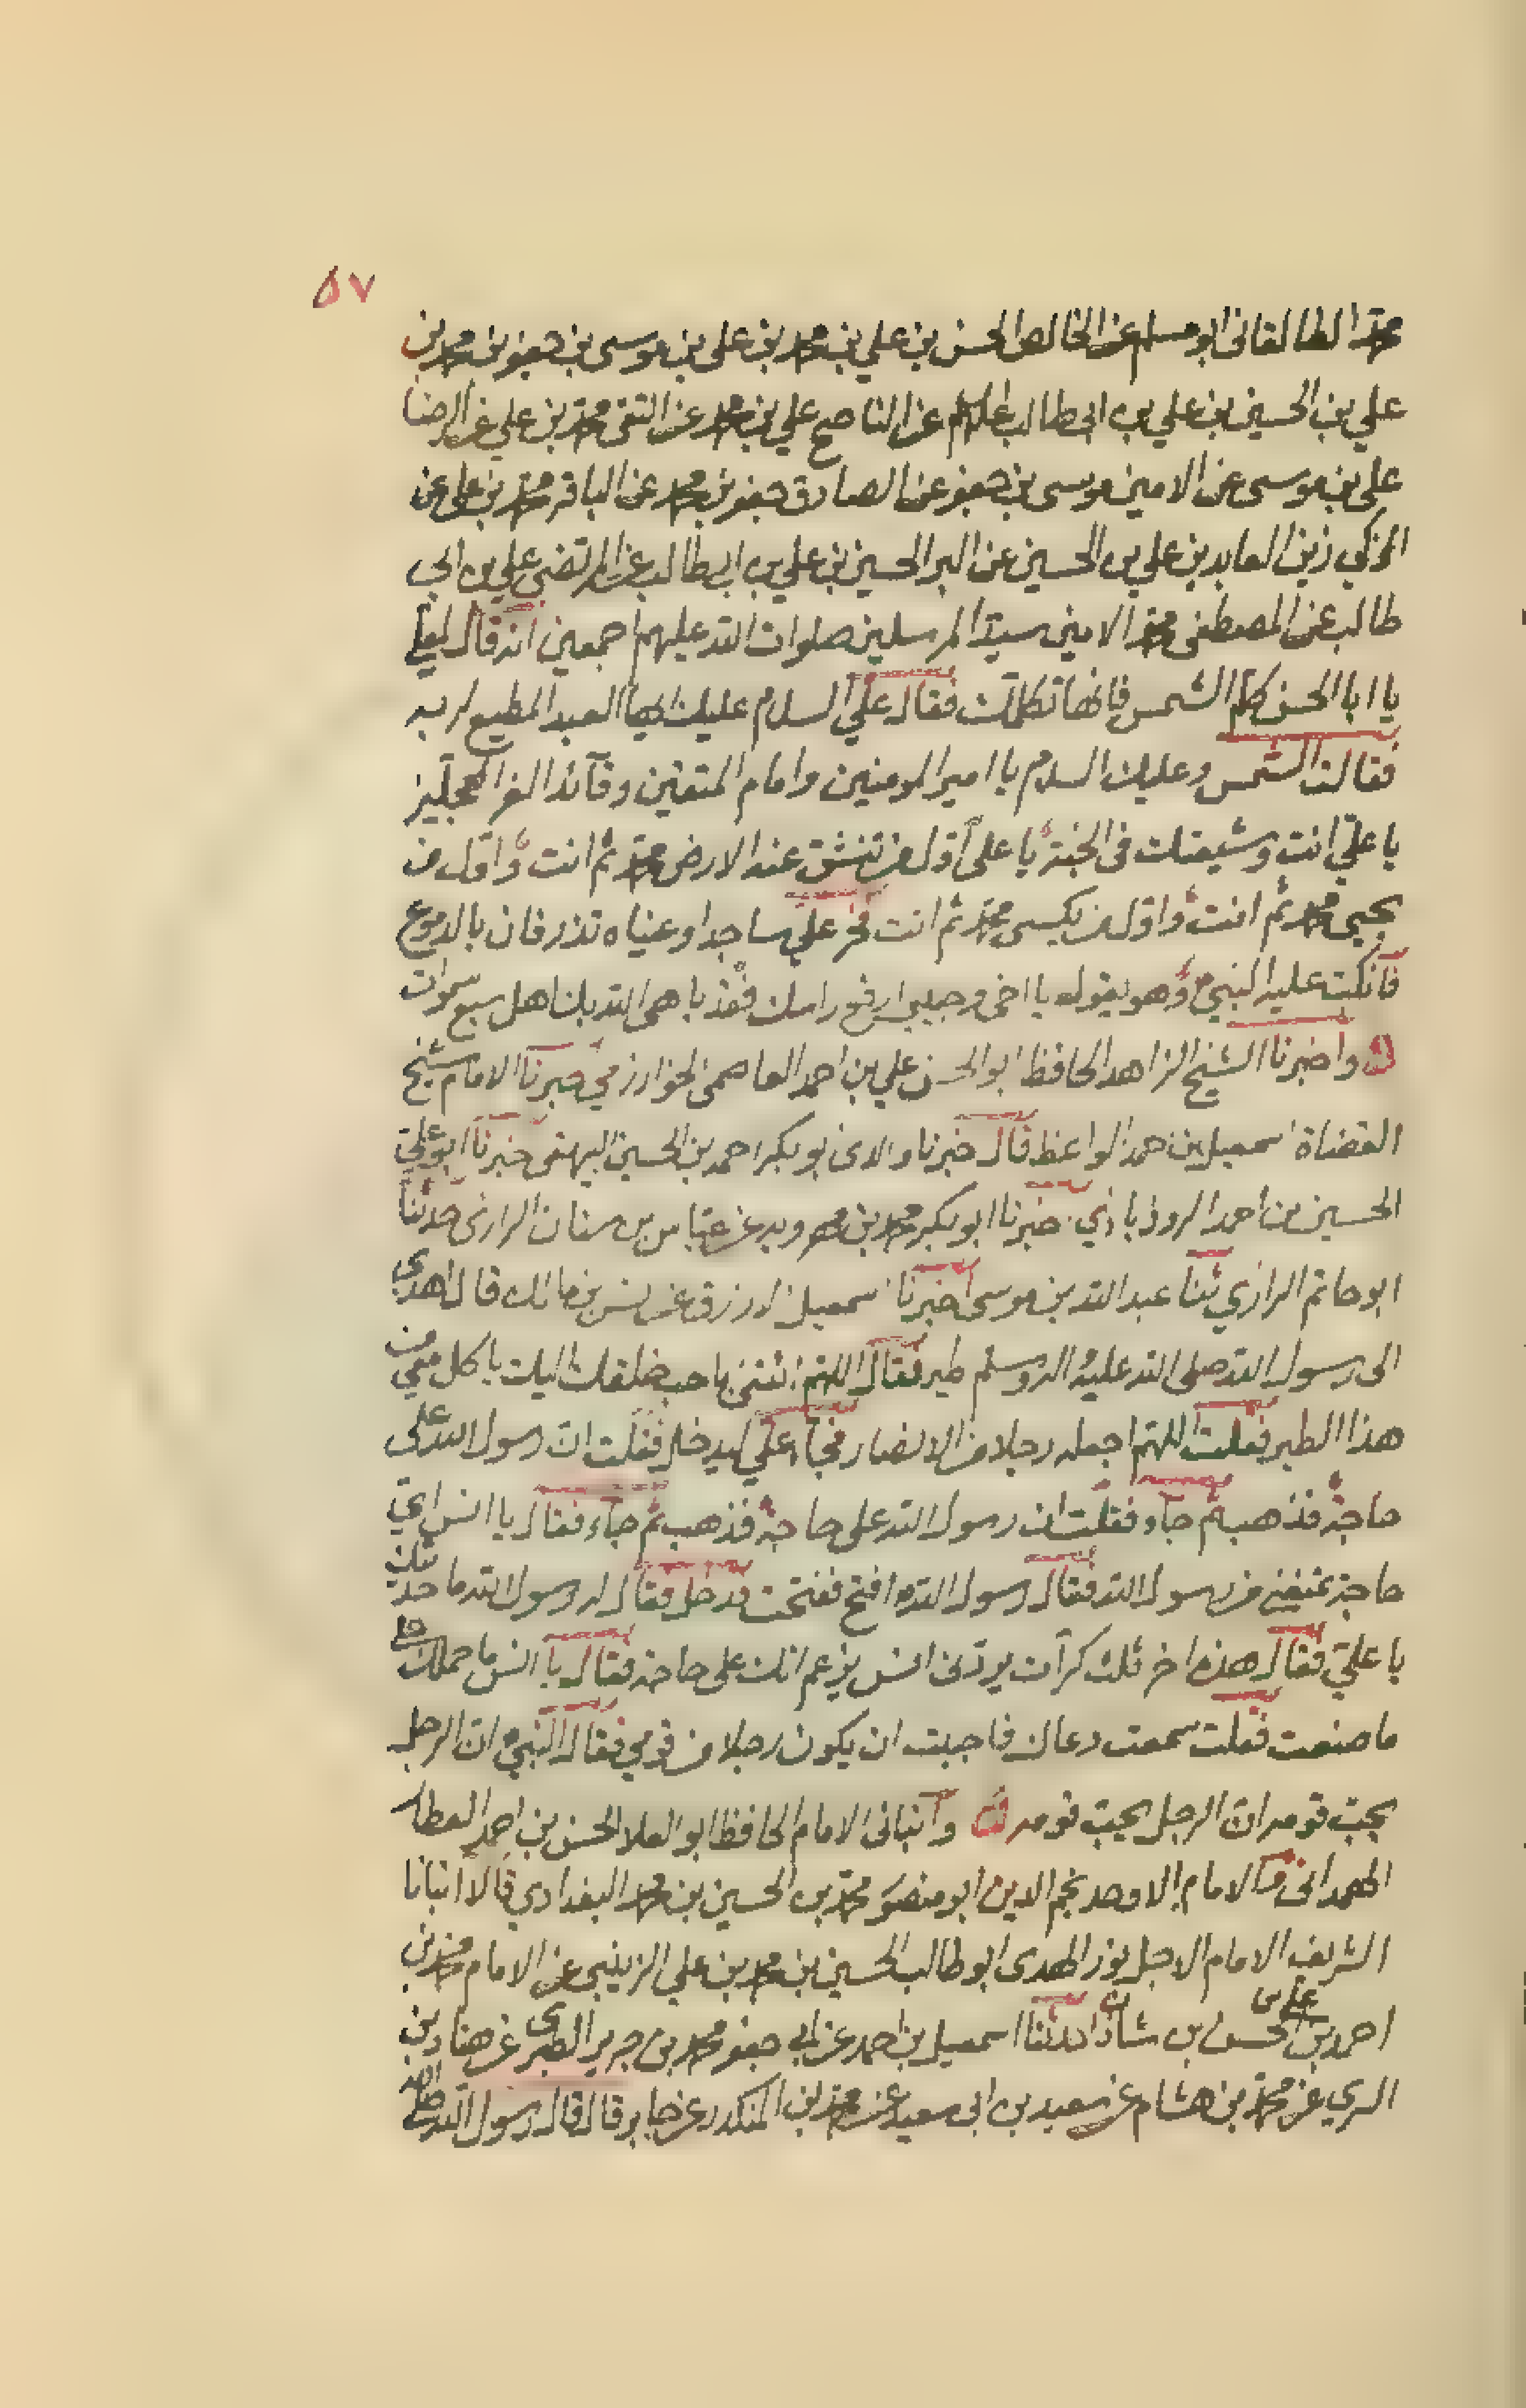 ٥٧
محمد الطالقانى ابو مسلم عن الخالص الحسن بن علي بن محمد بن على بن موسى بن جعفر بن محمد بن
علي بن الحسين بن علي بن ابى طالب عن الناصح علي بن محمد عن التقى محمد بن علي عن الرضا
على بن موسى عن الامين موسى بن جعفر عن الصادق جعفر بن محمد عن الباقر محمد بن على عن
الزكي زين العابدين علي بن الحسين عن البر الحسين بن علي بن ابى طالب عن المرتضى علي بن ابى
طالب عن المصطفى محمد الامين سيد المرسلين صلوات الله عليهم اجمعين انه قال لعلي
يا ابا الحسن كلم الشمس فانها تكلمك فقال علي السلام عليك ايها العبد المطيع لربه
فقالت الشمس وعليك السلام يا امير المومنين وامام المتقين وقائد الغر المحجلين
يا علي انت وشيعتك فى الجنة يا على اول من تنشق عنه الارض محمد ثم انت واول من
يحيى محمد ثم انت واول من يكسى محمد ثم انت فخر علي ساجدا وعيناه تذرفان بالدموع
فانكب عليه النبي وهو يقول يا اخى وحبيبي ارفع راسك فقد باهى الله بك اهل سبع سموات
واخبرنا الشيخ الزاهد الحافظ ابو الحسن علي بن احمد العاصمى الخوارزمي اخبرنا الامام شيخ
القضاة اسمعيل بن احمد الواعظ قال اخبرنا والدى ابو بكر احمد بن الحسين البيهقى اخبرنا ابو علي
الحسين بن احمد الروذباذي اخبرنا ابو بكر محمد بن مهرويه عن عباس بن سنان الرازى حدثنا
ابو حاتم الرازي ثنا عبد الله بن موسى اخبرنا اسمعيل الازرق عن انس بن مالك قال اهدى
الى رسول الله صلى الله عليه واله وسلم طير فقال اللهم ائتنى باحب خلقك اليك ياكل معي من
هذا الطير فقلت اللهم اجعله رجلا من الانصار فجآء علي ليدخل فقلت ان رسول الله على
حاجة فذهب ثم جآء فقلت ان رسول الله على حاجة فذهب ثم جآء فقال يا انس اي
حاجة تمنعنى من رسول الله فقال رسول الله افتح ففتحت فدخل فقال له رسول الله ما حديثك
يا علي فقال هذه اخر ثلث كرات يردنى انس يزعم انك على حاجة فقال يا انس ما حملك على
ما صنعت فقلت سمعت دعاك فاحببت ان يكون رجلا من قومي فقال النبي ان الرجل
يحب قومه ان الرجل يحب قومه وانبانى الامام الحافظ ابو العلا الحسن بن احمد العطار
الهمدانى والامام الاوحد نجم الدين ابو منصور محمد بن الحسين بن محمد البغدادي قالا انبانا
الشريف الامام الاجل نور الهدى ابو طالب الحسين بن محمد بن علي الزينبي عن الامام محمد بن
احمد بن علي بن الحسن بن شاذان حدثنا اسمعيل بن احمد عن ابي جعفر محمد بن جرير الطبرى عن هناد بن
السري عن محمد بن هشام عن سعيد بن ابى سعيد عن محمد بن المنكدر عن جابر قال قال رسول الله صلى الله